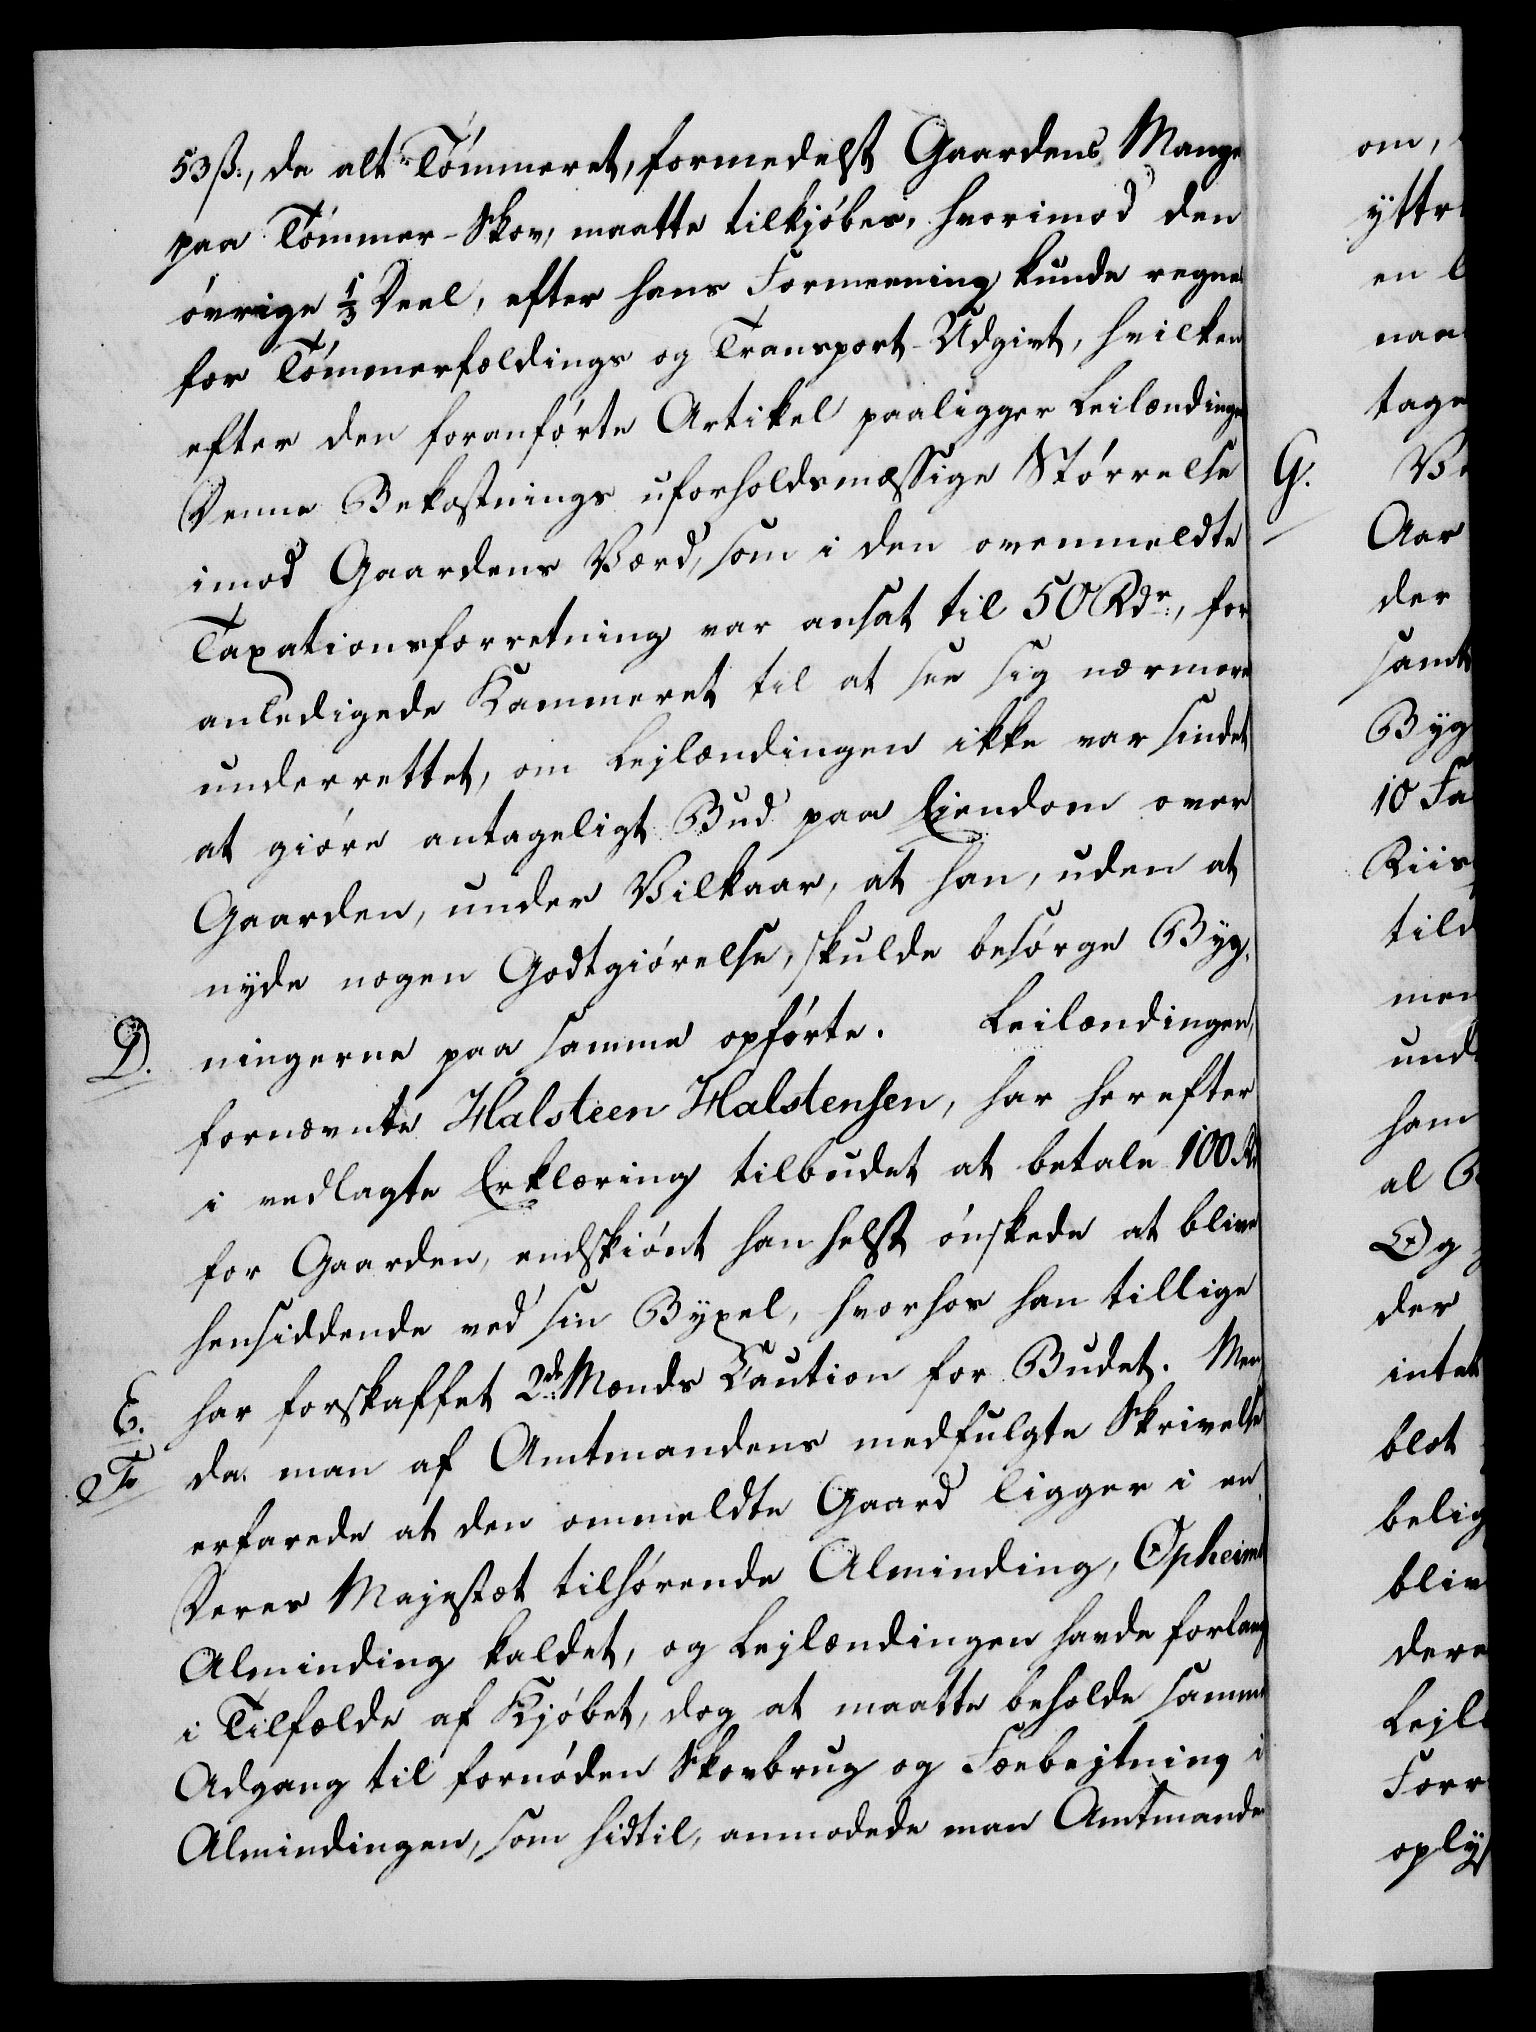 53 ß:, da alt Tömmeret, formedelst Gaardens Mangel
paa Tömmer-Skov, maatte tilkjöbes, hvorimod den
övrige 1/3 Deel, efter hans Formeening kunde regnes
for Tömmerfældings og Transport-Udgivt, hvilken
efter den foranförte Artikel paaligger Leilændingen
Denne Bekostnings uforholdsmæssige Störrelse
imod Gaardens Værd, som i den ovenmeldte
Taxationsforretning var ansat til 50 Rdr:, for
anledigede Kammeret til at see sig nærmere
underrettet, om Lejlændingen ikke var sindet
at giöre antageligt Bud paa Eiendom over
Gaarden, under Vilkaar, at han, uden at
nyde nogen Godtgiörelse, skulde besörge Byg-
D. ningerne paa samme opförte. Leilændingen,
fornævnte Halsteen Halstensen, har herefter
i vedlagte Erklæring tilbudet at betale 100 Rd
for Gaarden, endskiönt han helst önskede at blive
hensiddende ved sin Byxel, hvorhos han tillige
E. har forskaffet 2de Mænds Caution for Budet. Men
F. da man af Amtmandens medfulgte Skrivelse
erfarede at den ommeldte Gaard ligger i en
Deres Majestæt tilhörende Alminding, Opheims
Alminding kaldet, og Lejlændingen havde forlangt
i Tilfælde af Kjöbet, dog at maatte beholde samme
Adgang til fornöden Skovbrug og Fæebejtning i
Almindingen, som hidtil, anmodede man Amtmanden
om,
yttr
en
naa
tage
G. Ve
Aar
der
samt
Byg
10 Fa
Riis
tild
men
und
ham
al
Og
der
intet
blot
belig
bliv
dere
Lejl
Forr
oplys